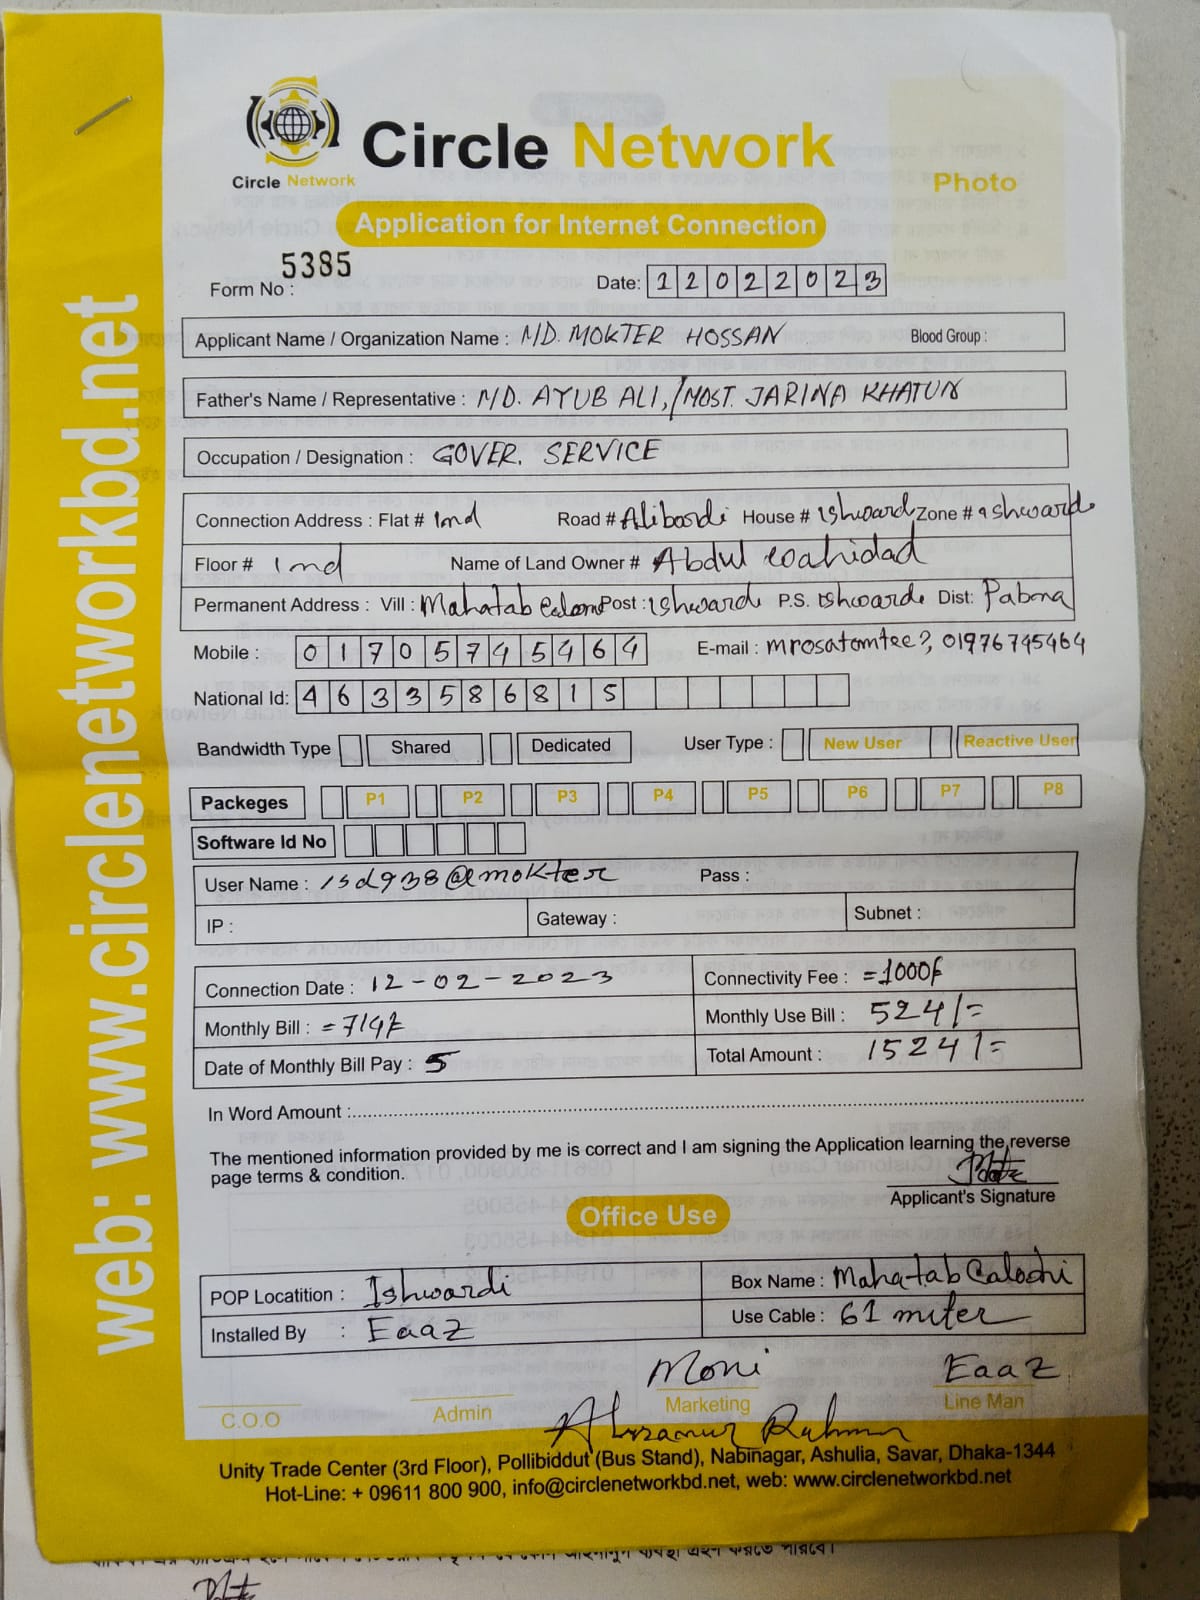 web: www.circlenetworkbd.net
Circle Network
Circle Network
Photo
Application for Internet Connection
Form No : 5385
Date: 12022023
Applicant Name / Organization Name : MD. MOKTER HOSSAN Blood Group :
Father's Name / Representative : MD. AYUB ALI, /MOST. JARINA KHATUN
Occupation / Designation : GOVER. SERVICE
Connection Address : Flat # 1nd Road # Alibordi House # ishwardi Zone # ishwardi
Floor # 1nd Name of Land Owner # Abdul wahidad
Permanent Address : Vill : Mahatab Post : ishwardi P.S. ishwardi Dist: Pabna
Mobile : 01705745464 E-mail : mrosatomtee?, 01976745464
National Id: 4633586815
Bandwidth Type Shared Dedicated User Type : New User Reactive User
Packeges P1 P2 P3 P4 P5 P6 P7 P8
Software Id No
User Name : isd938@mokter Pass :
IP : Gateway : Subnet :
Connection Date : 12-02-2023 Connectivity Fee : =1000/
Monthly Bill : =714/ Monthly Use Bill : 524/=
Date of Monthly Bill Pay : 5 Total Amount : 1524/=
In Word Amount :
The mentioned information provided by me is correct and I am signing the Application learning the reverse
page terms & condition.
Applicant's Signature
Office Use
POP Locatition : Ishwardi Box Name : Mahatab
Installed By : Eaaz Use Cable : 61 miter
Moni Eaaz
C.O.O Admin Marketing Line Man
Rahman
Unity Trade Center (3rd Floor), Pollibiddut (Bus Stand), Nabinagar, Ashulia, Savar, Dhaka-1344
Hot-Line: + 09611 800 900, info@circlenetworkbd.net, web: www.circlenetworkbd.net